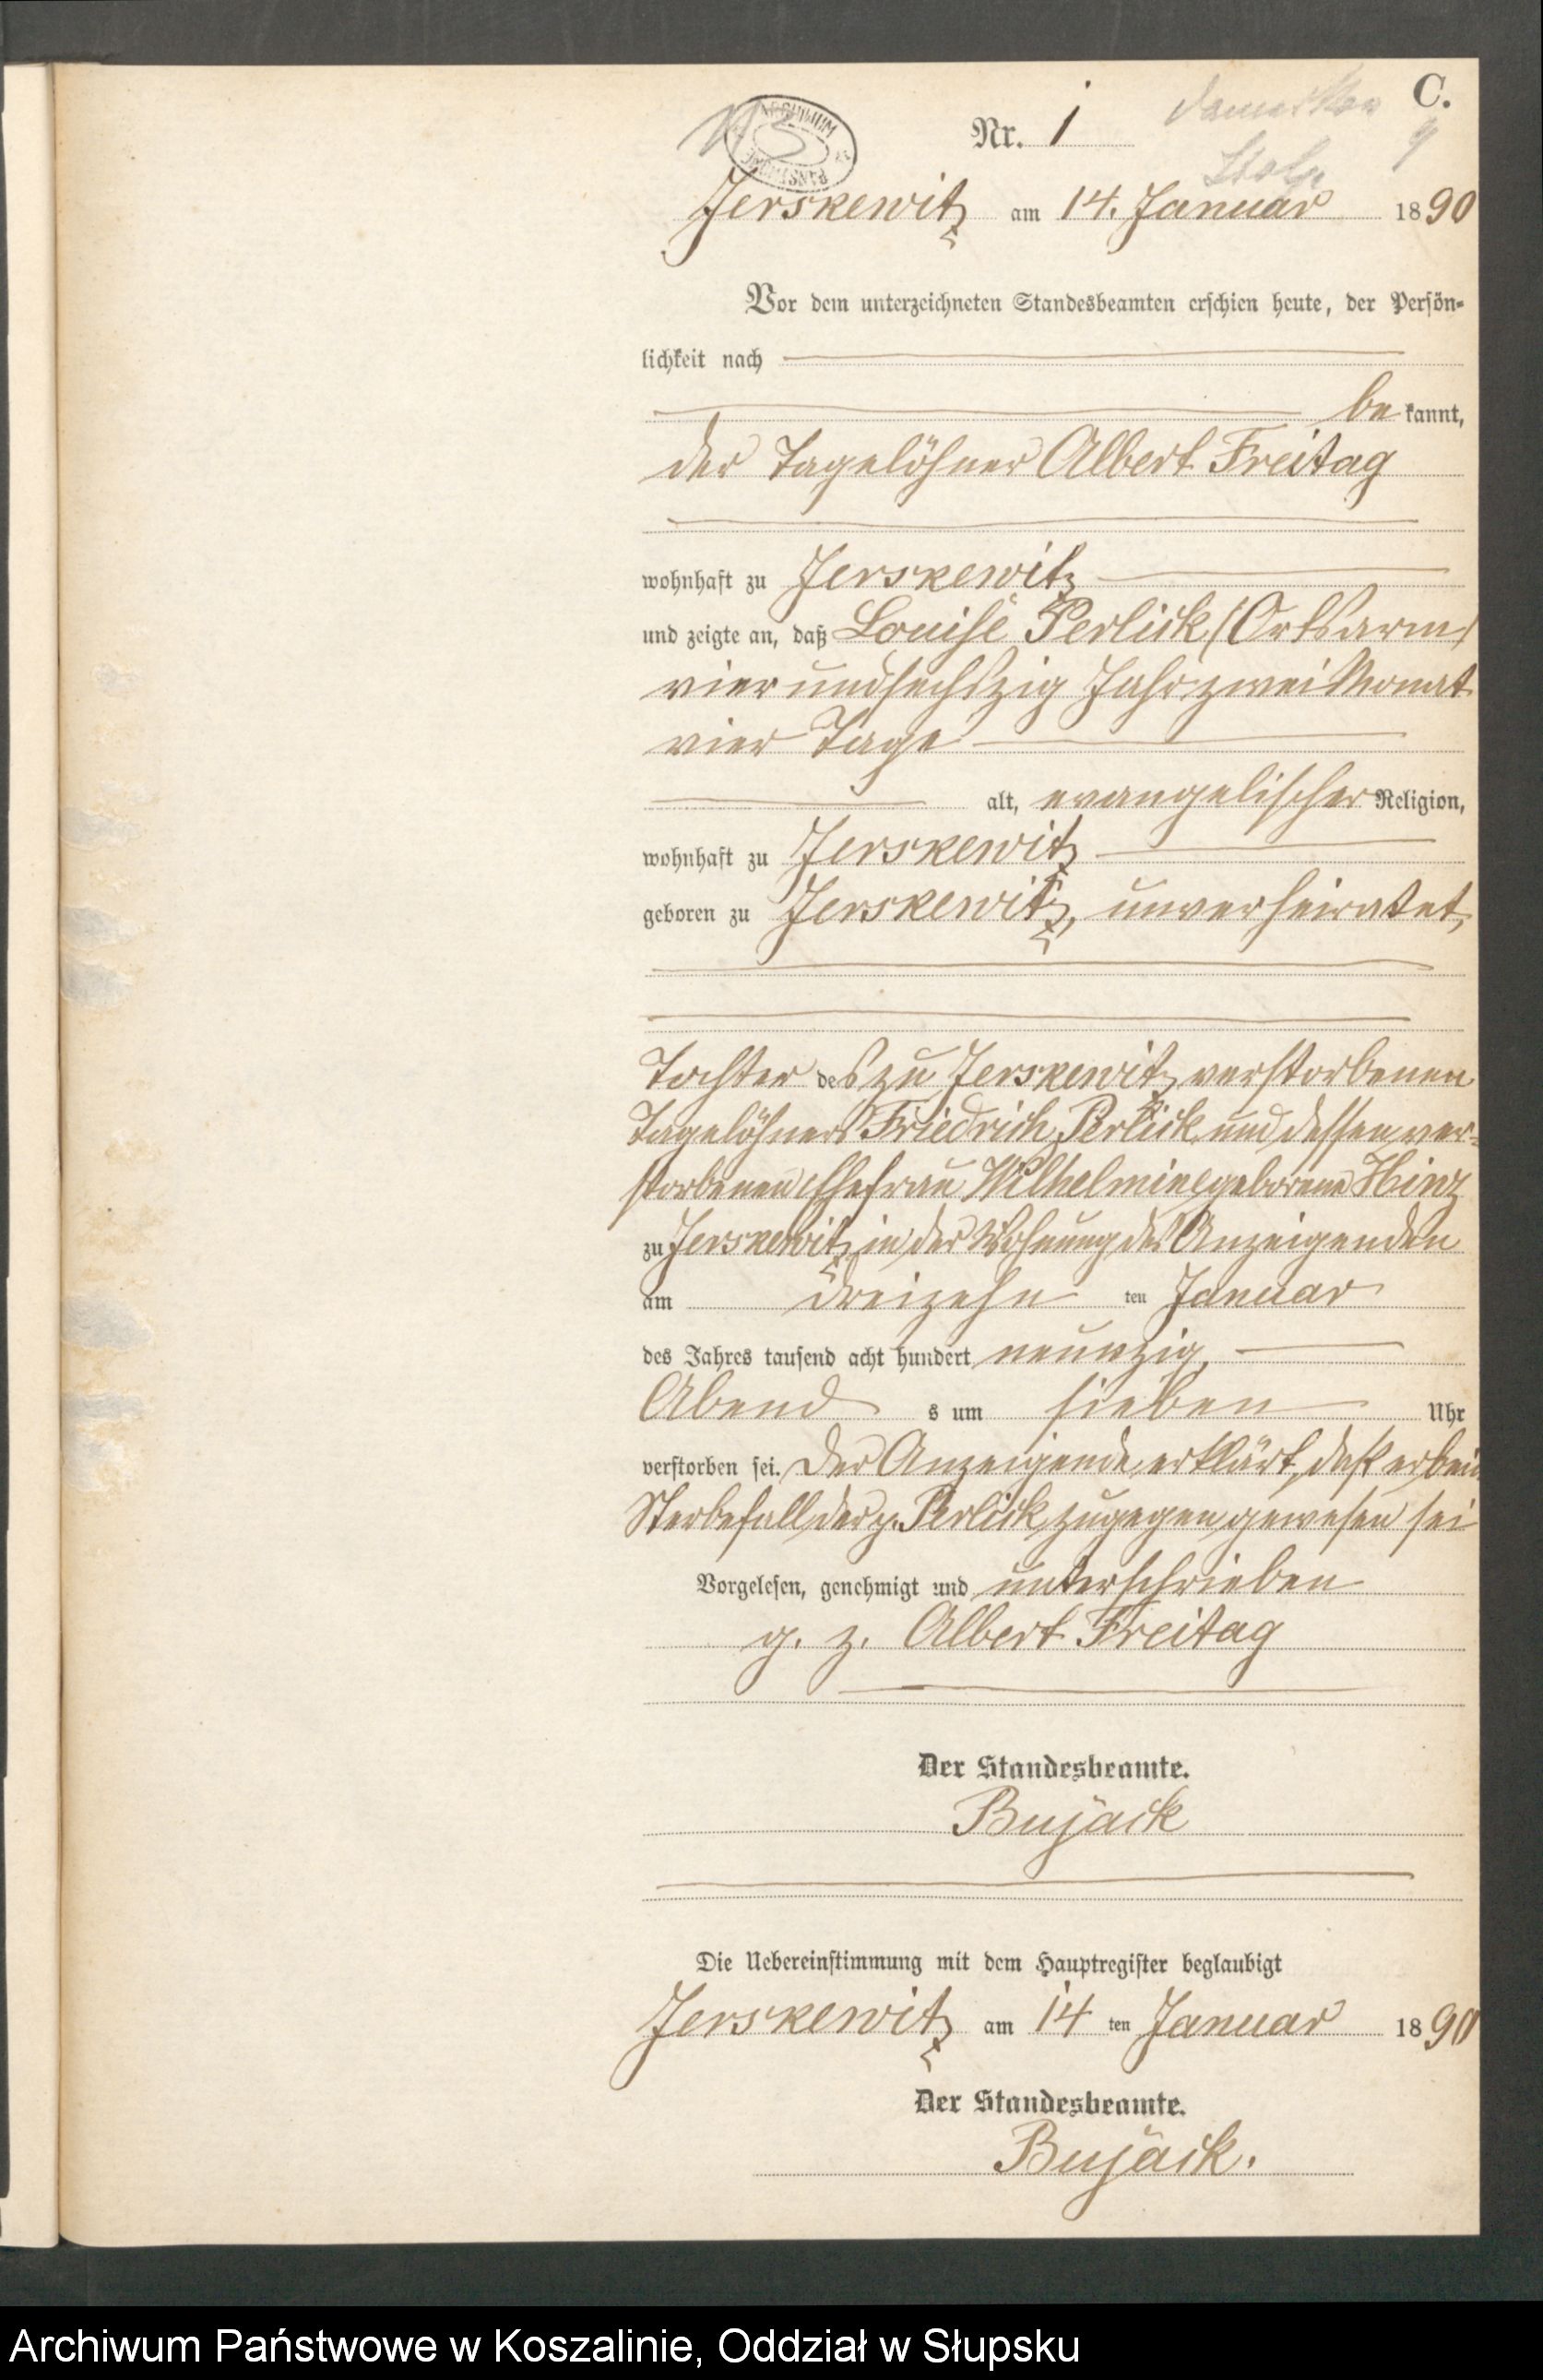 C.
Nr. 1
Stolp
ARCHIWUM PAŃSTWOWE
Jerskewitz am 14. Januar 1890
Vor dem unterzeichneten Standesbeamten erschien heute, der Persön-
lichkeit nach
be kannt,
der Tagelöhner Albert Freitag
wohnhaft zu Jerskewitz
und zeigte an, daß Louise Perlick (Ortsarm)
vier und sechszig Jahr zwei Monat
vier Tage
alt, evangelischer Religion,
wohnhaft zu Jerskewitz
geboren zu Jerskewitz, unverheiratet,
Tochter des zu Jerskewitz verstorbenen
Tagelöhners Friedrich Perlick und dessen ver-
storbenen Ehefrau Wilhelmine geborene Hinz
zu Jerskewitz in der Wohnung des Anzeigenden
am dreizehn ten Januar
des Jahres tausend acht hundert neunzig,
Abend s um sieben Uhr
verstorben sei. Der Anzeigende erklärt, daß er beim
Sterbefall der p. Perlick zugegen gewesen sei
Vorgelesen, genehmigt und unterschrieben
g. z. Albert Freitag
Der Standesbeamte.
Bujack
Die Uebereinstimmung mit dem Hauptregister beglaubigt
Jerskewitz am 14 ten Januar 1890
Der Standesbeamte.
Bujack.
Archiwum Państwowe w Koszalinie, Oddział w Słupsku